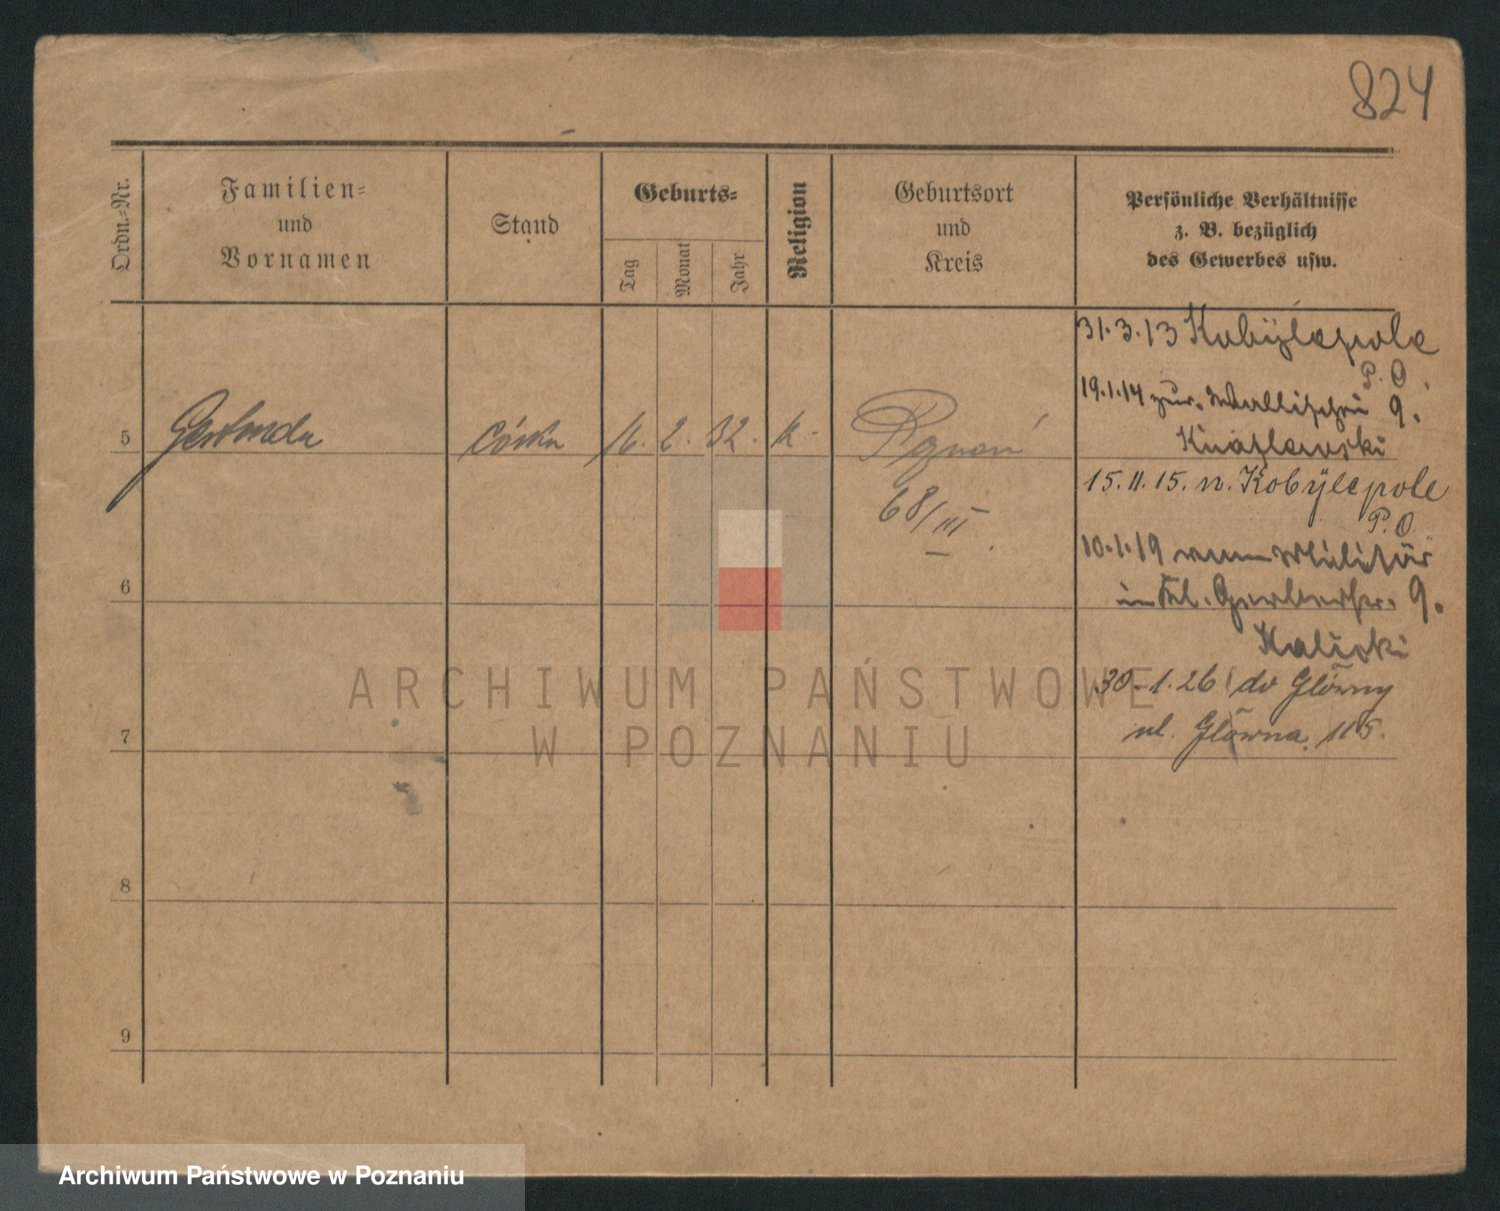 824
Ordn.-Nr.
Familien-
und
Vornamen
Stand
Geburts-
Tag
Monat
Jahr
Religion
Geburtsort
und
Kreis
Persönliche Verhältnisse
z. B. bezüglich
des Gewerbes usw.
31.3.13 Kobylepole
P. O.
19.1.14 zur. Wallischei 9.
5 Gertruda córka 16. 2. 32. k. Poznań
68/III
15.11.15. n. Kobylepole
P. O.
10.1.19 vom Militär
6
in Kl. Gerberstr. 9.
Kalicki
30.1.26 do Główny
ul. Główna 115.
7
8
9
ARCHIWUM PAŃSTWOWE
W POZNANIU
Archiwum Państwowe w Poznaniu